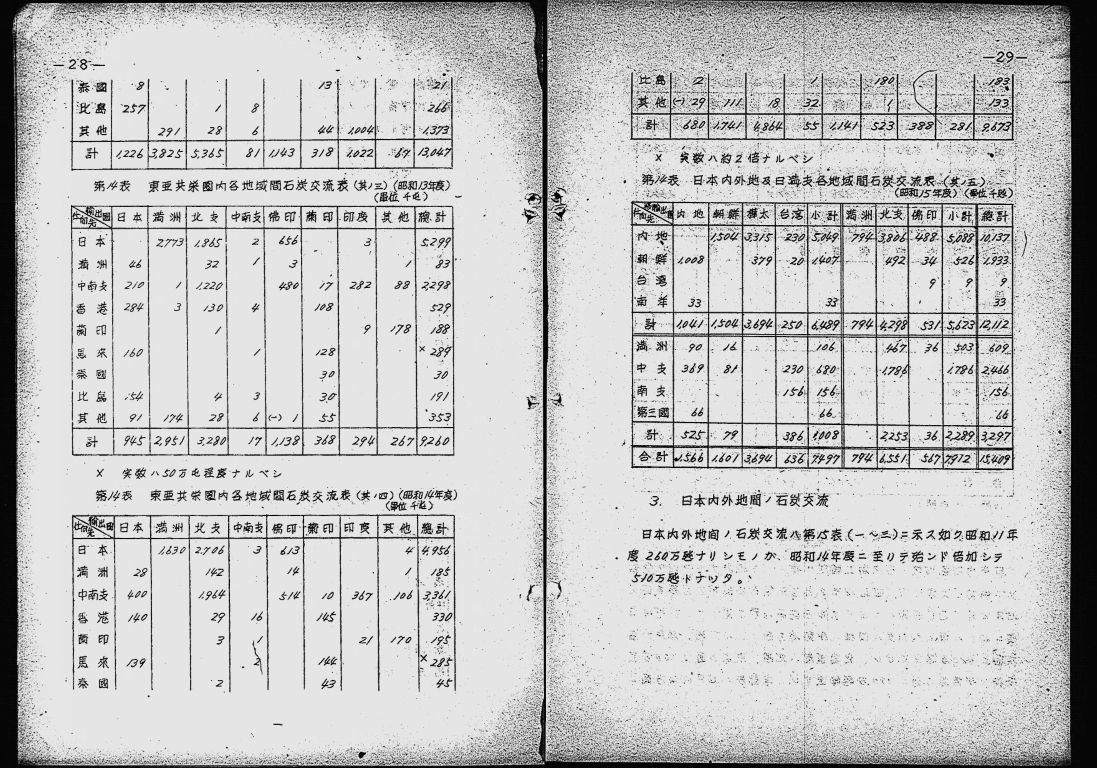 —28—
泰國 8 13 21
比島 257 1 8 266
其他 291 28 6 44 1,004 1,373
計 1,226 3,825 5,365 81 1,143 318 1,022 67 13,047
第14表 東亜共栄圏内各地域間石炭交流表(其ノ三)(昭和13年度)
(單位 千瓲)
仕向先 輸出國 日本 満洲 北支 中南支 佛印 蘭印 印度 其他 總計
日本 2,773 1,865 2 656 3 5,299
満洲 46 32 1 3 1 83
中南支 210 1 1,220 480 17 282 88 2,298
香港 284 3 130 4 108 529
蘭印 1 9 178 188
馬來 160 1 128 ×289
泰國 30 30
比島 154 4 3 30 191
其他 91 174 28 6 (-) 1 55 353
計 945 2,951 3,280 17 1,138 368 294 267 9,260
× 実数ハ50万瓲程度ナルベシ
第14表 東亜共栄圏内各地域間石炭交流表(其ノ四)(昭和14年度)
(單位 千瓲)
仕向先 輸出國 日本 満洲 北支 中南支 佛印 蘭印 印度 其他 總計
日本 1,630 2,706 3 613 4 4,956
満洲 28 142 14 1 185
中南支 400 1,964 514 10 367 106 3,361
香港 140 29 16 145 330
蘭印 3 1 21 170 195
馬來 139 2 144 ×285
泰國 2 43 45
—29—
比島 2 1 180 183
其他 (-) 29 111 18 32 1 133
計 680 1,741 4,864 55 1,141 523 388 281 9,673
× 実数ハ約2倍ナルベシ
第14表 日本内外地及日満支各地域間石炭交流表(其ノ五)
(昭和15年度)(單位千瓲)
仕向先 内地 朝鮮 樺太 台湾 小計 満洲 北支 佛印 小計 總計
内地 1,504 3,315 230 5,049 794 3,806 488 5,088 10,137
朝鮮 1,008 379 20 1,407 492 34 526 1,933
台湾 9 9 9
南洋 33 33 33
計 1,041 1,504 3,694 250 6,489 794 4,298 531 5,623 12,112
満洲 90 16 106 467 36 503 609
中支 369 81 230 680 1,786 1,786 2,466
南支 156 156 156
第三國 66 66 66
計 525 79 386 1,008 2,253 36 2,289 3,297
合計 1,566 1,601 3,694 636 7,497 794 6,551 567 7,912 15,409
3. 日本内外地間ノ石炭交流
日本内外地間ノ石炭交流ハ第15表(一〜三)ニ示ス如ク昭和11年
度260万瓲ナリシモノガ、昭和14年度ニ至リテ殆ンド倍加シテ
510万瓲トナツタ。